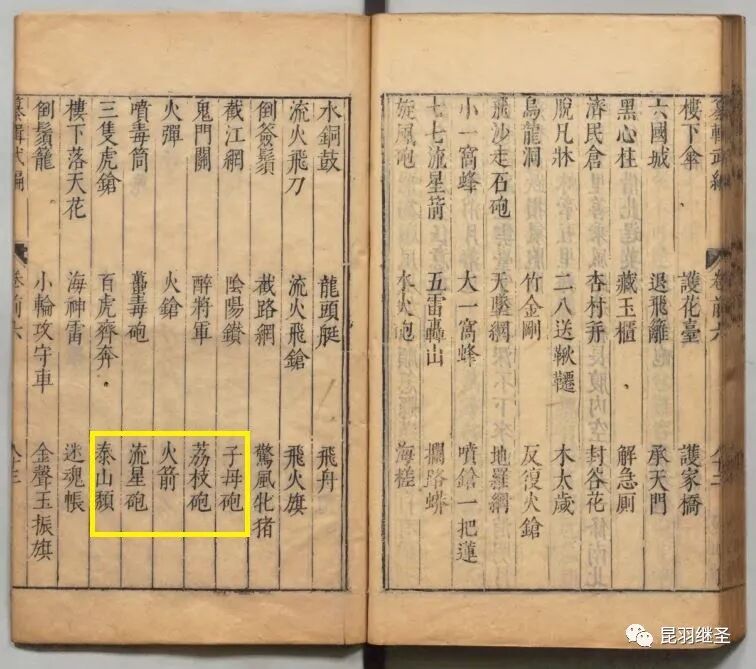 樓下傘 護花臺 護家橋
六國城 退飛籬 承天門
黑心柱 藏玉櫃 解急厠
濟民倉 杏村 封谷花
脫凡牀 二八送鞦韆 木太歲
烏龍洞 竹金剛 反復火鎗
飛沙走石砲 天墜網 地羅網
小一窩蜂 大一窩蜂 噴鎗一把蓮
七七流星箭 五雷轟山 攔路蟒
旋風砲 水火砲 海槎
水銅鼓 龍頭艇 飛舟
流火飛刀 流火飛鎗 飛火旗
倒簽鬚 截路網 驚風牝猪
截江網 陰陽鑽 子母砲
鬼門關 醉將軍 荔枝砲
火彈 火鎗 火箭
噴毒筒 蠆毒砲 流星砲
三隻虎鎗 百虎齊奔 泰山頹
樓下落天花 海神雷 迷魂帳
倒鬚籠 小輪攻守車 金聲玉振旗
纂輯武編 卷前六
昆羽继圣